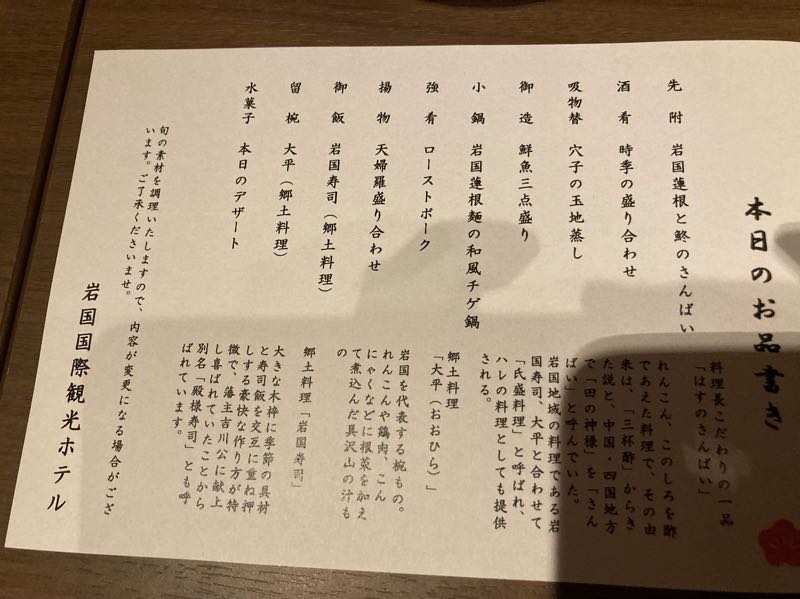 本日のお品書き
先附 岩国蓮根と鮗のさんばい
酒肴 時季の盛り合わせ
吸物替 穴子の玉地蒸し
御造 鮮魚三点盛り
小鍋 岩国蓮根麺の和風チゲ鍋
強肴 ローストポーク
揚物 天婦羅盛り合わせ
御飯 岩国寿司(郷土料理)
留椀 大平(郷土料理)
水菓子 本日のデザート
料理長こだわりの一品
「はすのさんばい」
れんこん、このしろを酢
であえた料理で、その由
来は、「三杯酢」からき
た説と、中国・四国地方
で「田の神様」を「さん
ばい」と呼んでいた。
岩国地域の料理である岩
国寿司、大平と合わせて
「氏盛料理」と呼ばれ、
ハレの料理としても提供
される。
郷土料理
「大平(おおひら)」
岩国を代表する椀もの。
れんこんや鶏肉、こん
にゃくなどに根菜を加え
て煮込んだ具沢山の汁も
の
郷土料理「岩国寿司」
大きな木枠に季節の具材
と寿司飯を交互に重ね押
しする豪快な作り方が特
徴で、藩主吉川公に献上
し喜ばれていたことから
別名「殿様寿司」とも呼
ばれています。
旬の素材を調理いたしますので、内容が変更になる場合がござ
います。ご了承くださいませ。
岩国国際観光ホテル